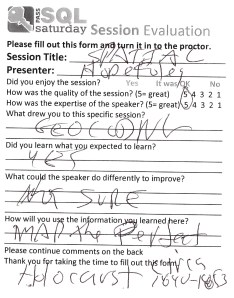 PASS SQL saturday Session Evaluation
Please fill out this form and turn it in to the proctor.
Session Title: SPATIAL
Presenter:
Did you enjoy the session? Yes It was OK No
How was the quality of the session? (5= great) 5 4 3 2 1
How was the expertise of the speaker? (5= great) 5 4 3 2 1
What drew you to this specific session?
GEOCODING
Did you learn what you expected to learn?
YES
What could the speaker do differently to improve?
NOT SURE
How will you use the information you learned here?
MAP the Perfect
Please continue comments on the back
Thank you for taking the time to fill out this form
Holocaust